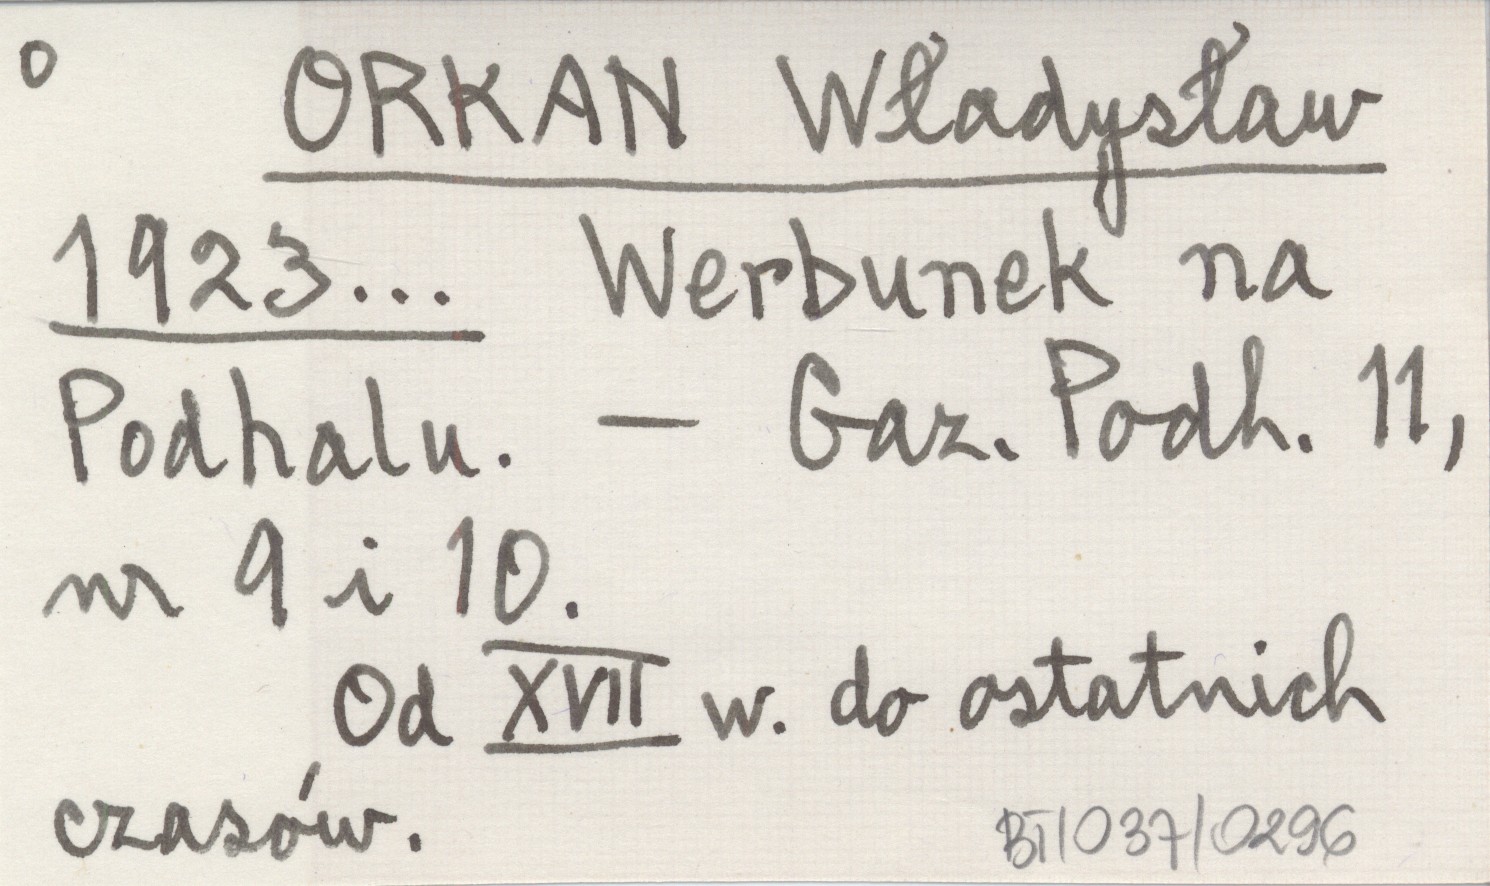 o
ORKAN Władysław
1923... Werbunek na
Podhalu. — Gaz. Podh. 11,
nr 9 i 10.
Od XVII w. do ostatnich
czasów.
BT/037/0296